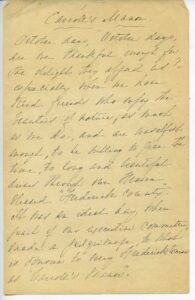 Carroll's Manor
October days, October days,
are we thankful enough for
the delights they afford us?
especially when we have
kind friends who enjoy the
beauties of nature, as much
as we do, and are unselfish
enough, to be willing to give the
time, to long and beautiful
drives through our Heaven
blessed Frederick County.
It was an ideal day, when
part of our executive Committee,
made a pilgrimage, to what
is known to every Fredericktonian
as "Carroll's Manor".